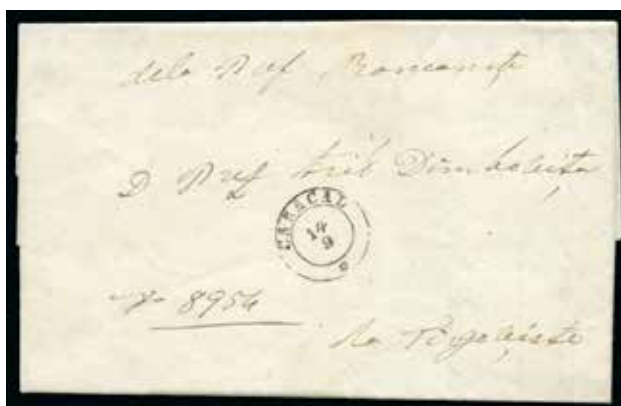 dela Pref. Romanați
D Pref trib Dîmbovița
CARACAL
14
9
No 8954
la Tîrgoviște